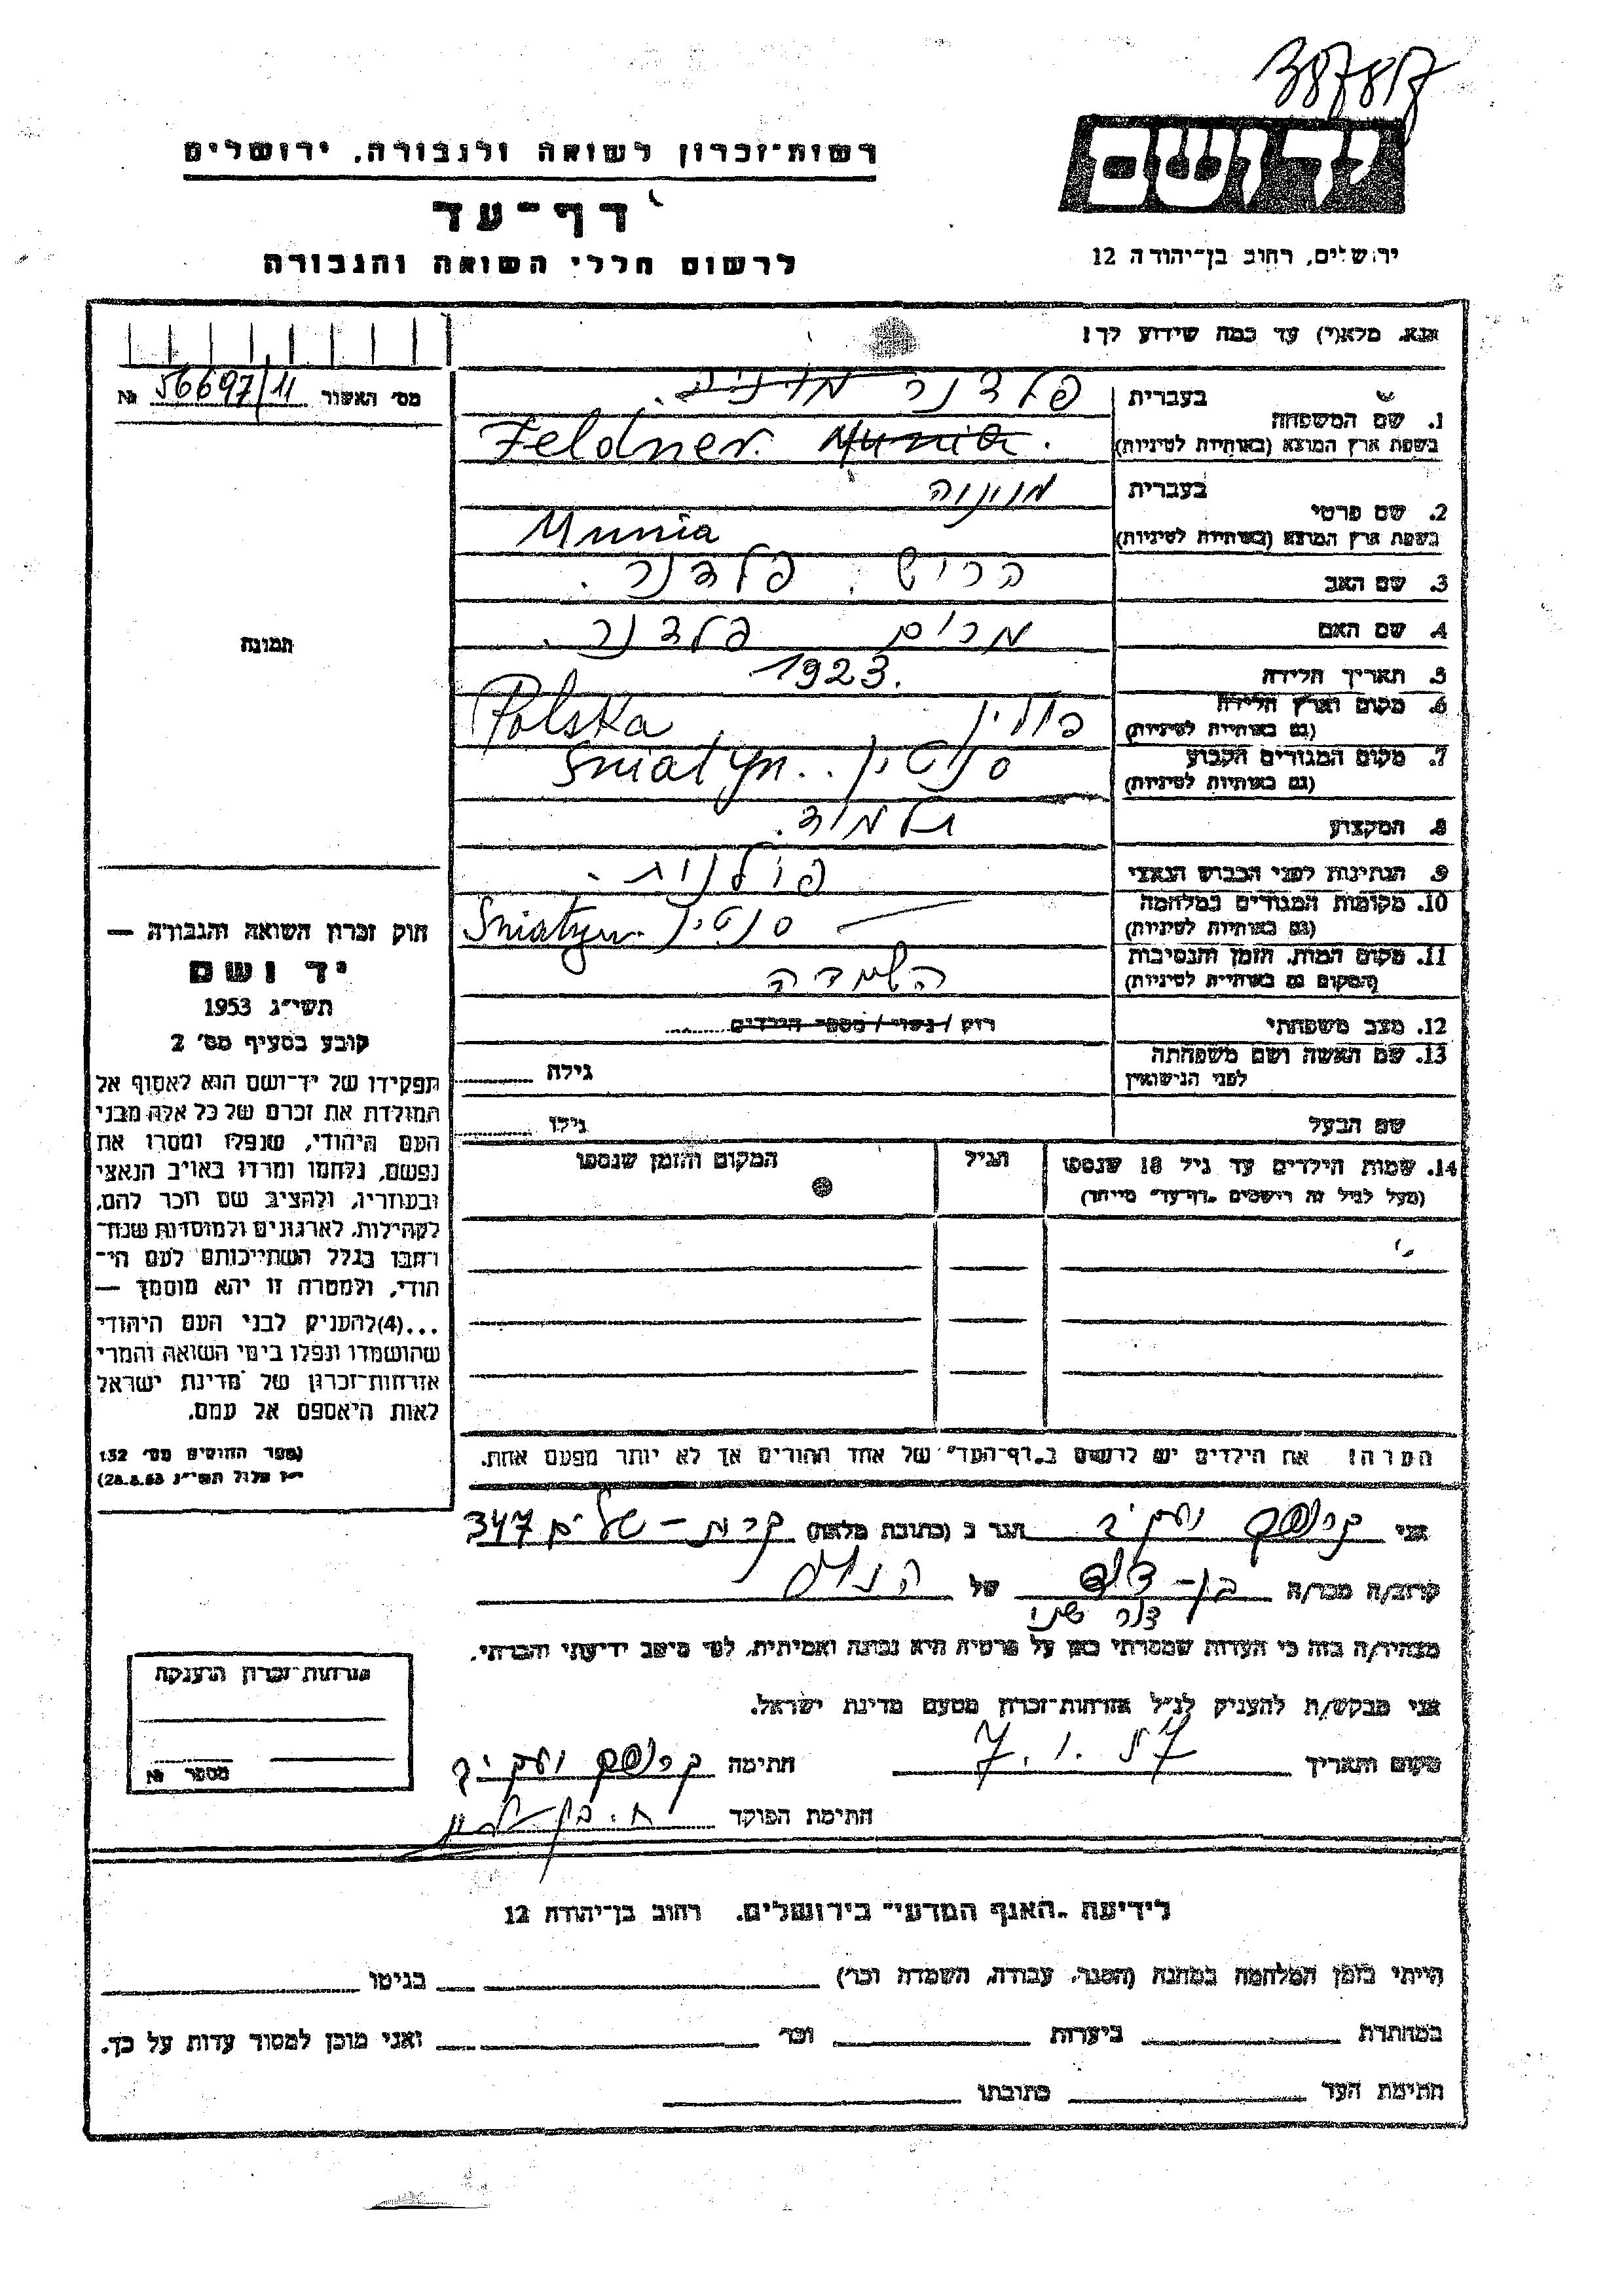 387817
יד ושם
ירושלים, רחוב בן־יהודה 12
רשות־זכרון לשואה ולגבורה, ירושלים
דף־עד
לרשום חללי השואה והגבורה
אנא, מלא(י) עד כמה שידוע לך!
מס׳ האשור 56697/11 №
1. שם המשפחה
בעברית פלדנר
בשפת ארץ המוצא (באותיות לטיניות) Feldner. Munia.
2. שם פרטי
בעברית מוניה
בשפת ארץ המוצא (באותיות לטיניות) Munia
3. שם האב הריש פלדנר.
4. שם האם מרים פלדנר.
5. תאריך הלידה 1923.
6. מקום וארץ הלידה (גם באותיות לטיניות) פולין Polska
7. מקום המגורים הקבוע (גם באותיות לטיניות) סניטין Sniatyn..
8. המקצוע תלמיד.
9. הנתינות לפני הכבוש הנאצי פולנית.
10. מקומות המגורים במלחמה (גם באותיות לטיניות) סניטין Sniatyn.
11. מקום המות, הזמן והנסיבות (המקום גם באותיות לטיניות) השמדה
12. מצב משפחתי רוק / נשוי / מספר הילדים
13. שם האשה ושם משפחתה לפני הנישואין גילה
שם הבעל גילו
14. שמות הילדים עד גיל 18 שנספו (מעל לגיל זה רושמים „דף־עד״ מיוחד) הגיל המקום והזמן שנספו
הערה! את הילדים יש לרשום ב„דף־העד״ של אחד ההורים אך לא יותר מפעם אחת.
תמונה
חוק זכרון השואה והגבורה —
יד ושם
תשי״ג 1953
קובע בסעיף מס׳ 2
תפקידו של יד־ושם הוא לאסוף אל
המולדת את זכרם של כל אלה מבני
העם היהודי, שנפלו ומסרו את
נפשם, נלחמו ומרדו באויב הנאצי
ובעוזריו, ולהציב שם וזכר להם,
לקהילות, לארגונים ולמוסדות שנח־
רבו בגלל השתייכותם לעם הי־
הודי, ולמטרה זו יהא מוסמך —
...(4)להעניק לבני העם היהודי
שהושמדו ונפלו בימי השואה והמרי
אזרחות־זכרון של מדינת ישראל
לאות היאספם אל עמם.
(ספר החוקים מס׳ 132
י״ז אלול תשי״ג 28.8.53)
אני הגר ב (כתובת מלאה) קרית־שלום 347
קרוב/ה מכר/ה בן־דוד של הנ״ל
מצהיר/ה בזה כי העדות שמסרתי כאן על פרטיה היא נכונה ואמיתית, לפי מיטב ידיעתי והכרתי.
אני מבקש/ת להעניק לנ״ל אזרחות־זכרון מטעם מדינת ישראל.
מקום ותאריך 7.1.57 חתימה
חתימת הפוקד
אזרחות־זכרון הוענקה
מספר №
לידיעת „האגף המדעי״ בירושלים, רחוב בן־יהודה 12
הייתי בזמן המלחמה במחנה (הסגר, עבודה, השמדה וכו׳) בגיטו
במחתרת ביערות וכו׳ ואני מוכן למסור עדות על כך.
חתימת העד כתובתו